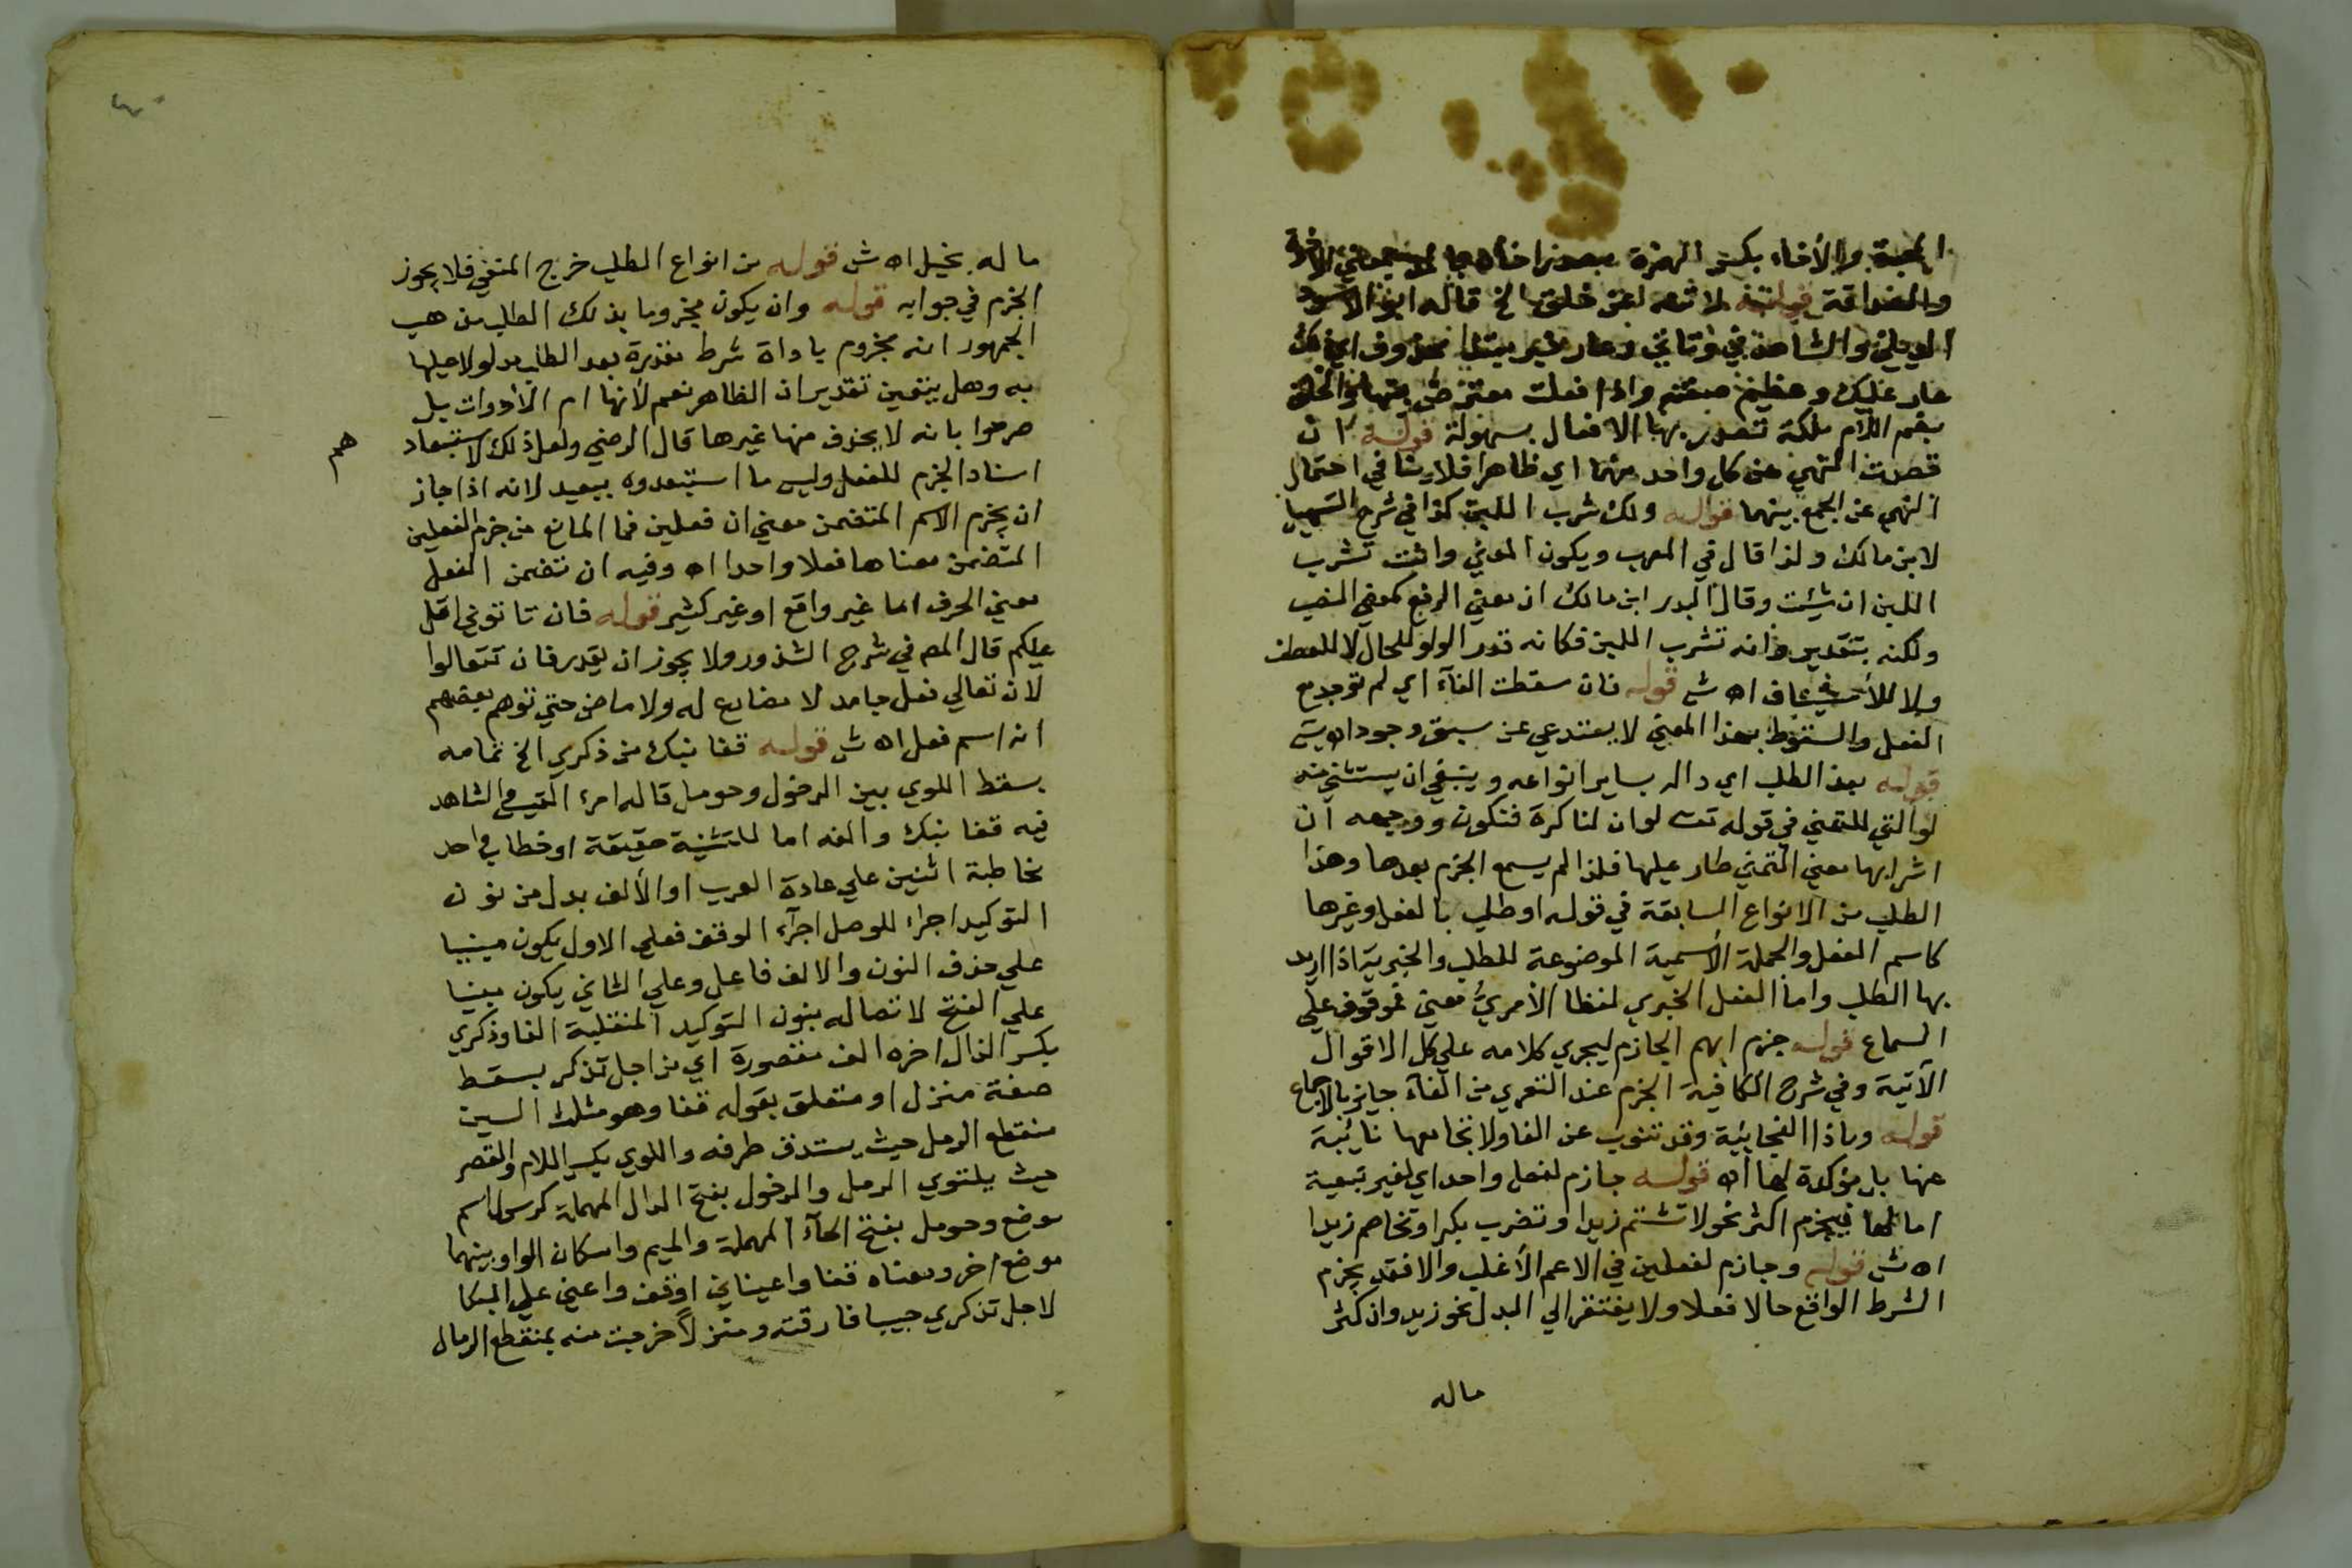 المحبة والأخاء بكسر الهمزة
والصداقة قوله لا تنه عن خلق الخ قاله ابو الاسود
الديلي والشاهد في وتاتي وعار خبر مبتدا محذوف اي ذلك
عار عليك وعظيم صفته واذا فعلت معترض بينهما والخلق
بضم اللام ملكة تصدر بها الافعال بسهولة قوله ان
قصدت النهي عن كل واحد منهما اي ظاهرا فلا ينافي احتمال
النهي عن الجمع بينهما قوله ولك شرب اللبن كذا في شرح التسهيل
لابن مالك ولذا قال في المعرب ويكون المعني وانت تشرب
اللبن ان شئت وقال البدر ابن مالك ان معني الرفع كمعني النصب
ولكنه بتقدير وانه تشرب اللبن فكانه قدر الواو للحال لا للعطف
ولا للأستيناف اه ش قوله فان سقطت الفآء اي لم توجد مع
الفعل والسقوط بهذا المعني لا يستدعي عن سبق وجود اه ش
قوله بعد الطلب اي داله بساير انواعه وينبغي ان يستثني منه
لو التي للتمني في قوله تعـ لو ان لنا كرة فنكون ووجهه ان
اشرابها معني التمني طار عليها فلذا لم يسمع الجزم بعدها وهذا
الطلب من الانواع السابقة في قوله او طلب بالفعل وغيرها
كاسم الفعل والجملة الأسمية الموضوعة للطلب والخبرية اذا اريد
بها الطلب واما الفعل الخبري لفظا الأمري معني فموقوف علي
السماع قوله جزم ابهم الجازم ليجري كلامه علي كل الاقوال
الآتية وفي شرح الكافية الجزم عند التعري من الفآء جايز بالاجماع
قوله وباذا الفجائية وقد تنوب عن الفا ولا تجامعها نائبة
عنها بل مؤكدة لها اه قوله جازم لفعل واحد اي لغير تبعية
اما لها فيجزم اكثر نحو لا تشتم زيدا وتضرب بكرا وتخاصم زيدا
اه ش قوله وجازم لفعلين في الاعم الأغلب والا فقد يجزم
الشرط الواقع حالا فعلا ولا يفتقر الي البدل نحو زيد وان كثر
ماله
ماله بخيل اه ش قوله من انواع الطلب خرج المنفي فلا يجوز
الجزم في جوابه قوله وان يكون مجزوما بذلك الطلب مذهب
الجمهور انه مجزوم باداة شرط مقدرة بعد الطلب مدلولا عليها
به وهل يتعين تقدير ان الظاهر نعم لأنها ام الأدوات بل
صرحوا بانه لا يحذف منها غيرها قال الرضي ولعل ذلك لاستبعاد
هم
اسناد الجزم للفعل وليس ما استبعدوه ببعيد لانه اذا جاز
ان يجزم الاسم المتضمن معني ان فعلين فما المانع من جزم الفعلين
المتضمن معناها فعلا واحدا اه وفيه ان تضمن الفعل
معني الحرف اما غير واقع او غير كثير قوله فان تاتوني اتل
عليكم قال المص في شرح الشذور ولا يجوز ان يقدر فان تتعالوا
لان تعالي فعل جامد لا مضارع له ولا ماض حتي توهم بعضهم
انه اسم فعل اه ش قوله قفا نبك من ذكري الخ تمامه
بسقط اللوي بين الدخول وحومل قاله امرء القيس والشاهد
فيه قفا نبك والفه اما للتثنية حقيقة او خطاب واحد
مخاطبة اثنين علي عادة العرب او الألف بدل من نون
التوكيد اجراء للوصل اجرآء الوقف فعلي الاول يكون مبنيا
علي حذف النون والالف فاعل وعلي الثاني يكون مبنيا
علي الفتح لاتصاله بنون التوكيد المنقلبة الفا وذكري
بكسر الذال اخره الف مقصورة اي من اجل تذكر بسقط
صفة منزل او متعلق بقوله قفا وهو مثلث السين
منقطع الرمل حيث يستدق طرفه واللوي بكسر اللام والقصر
حيث يلتوي الرمل والدخول بفتح الدال المهملة كرسول اسم
موضع وحومل بفتح الحآء المهملة والميم واسكان الواو بينهما
موضع اخر ومعناه قفا واعيناني اوقف واعني علي البكا
لاجل تذكري حبيبا فارقته ومنزلاً خرجت منه بمنقطع الرمال